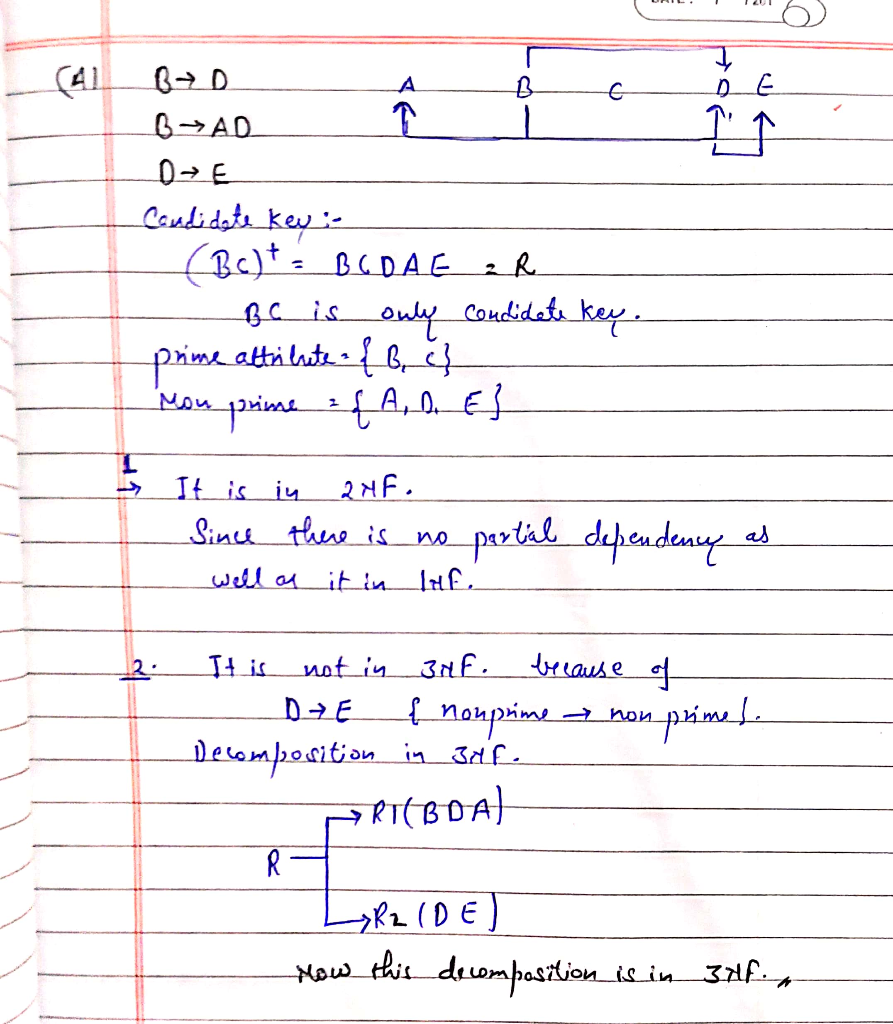 (A) B→ D A B C D E
B→AD
D→ E
Candidate key :-
(BC)+ = BCDAE = R
BC is only Candidate key.
prime attribute = { B, C}
Non prime = { A, D, E}
1
→ It is in 2NF.
Since there is no partial dependency as
well as it in 1NF.
2. It is not in 3NF. because of
D→E { nonprime → non prime}.
Decomposition in 3NF.
→ R1(BDA)
R
→R2 (DE)
Now this decomposition is in 3NF.